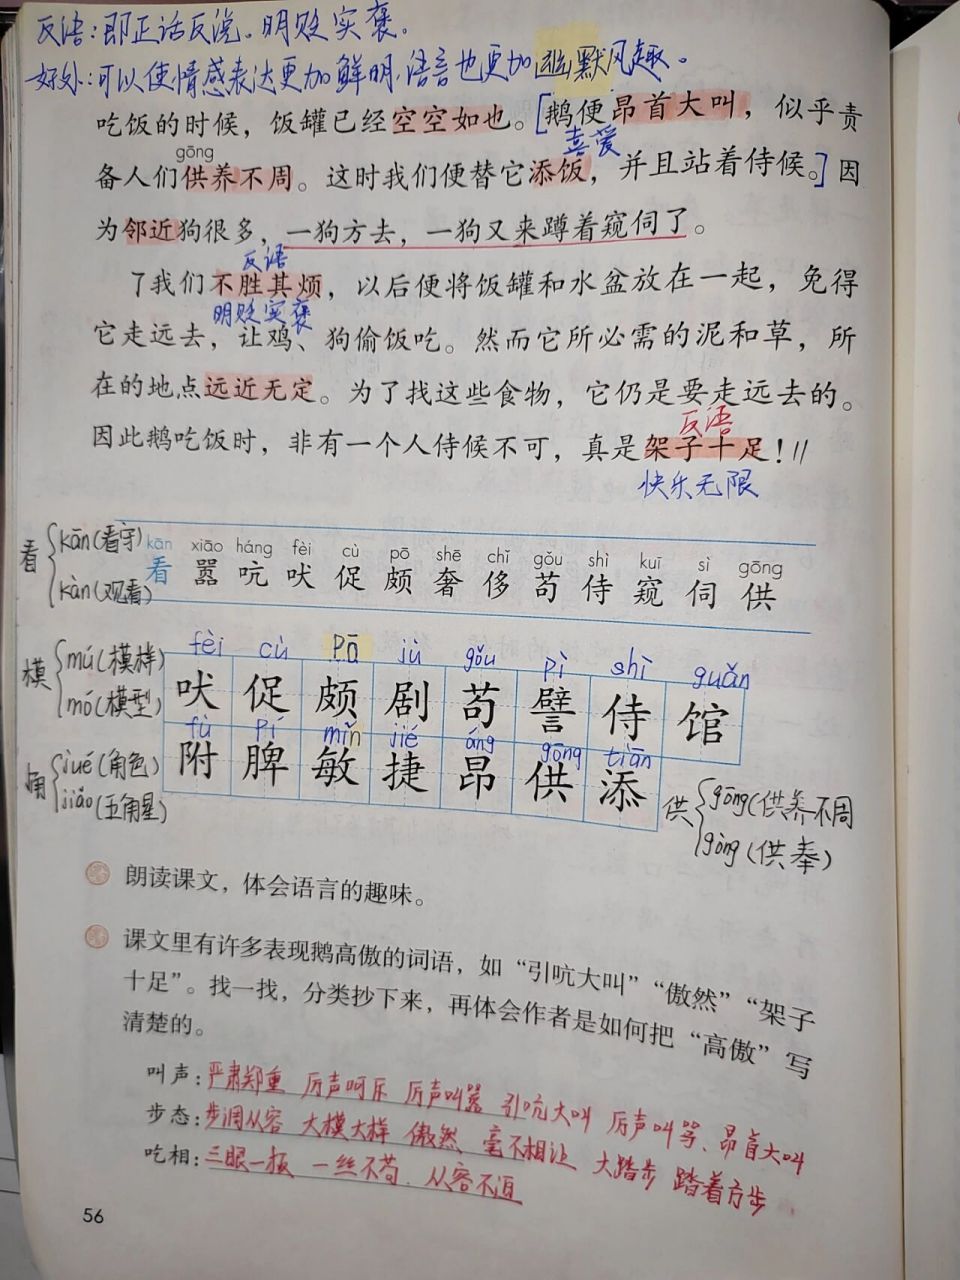 反语:即正话反说。明贬实褒。
好处:可以使情感表达更加鲜明,语言也更加幽默风趣。
吃饭的时候，饭罐已经空空如也。[鹅便昂首大叫，似乎责
gōng
喜爱
备人们供养不周。这时我们便替它添饭，并且站着侍候。]因
为邻近狗很多，一狗方去，一狗又来蹲着窥伺了。
反语
了我们不胜其烦，以后便将饭罐和水盆放在一起，免得
明贬实褒
它走远去，让鸡、狗偷饭吃。然而它所必需的泥和草，所
在的地点远近无定。为了找这些食物，它仍是要走远去的。
反语
因此鹅吃饭时，非有一个人侍候不可，真是架子十足！//
快乐无限
看 kān(看守)
kàn(观看)
kān xiāo háng fèi cù pō shē chǐ gǒu shì kuī sì gōng
看 嚣 吭 吠 促 颇 奢 侈 苟 侍 窥 伺 供
模 mú(模样)
mó(模型)
fèi cù pō jù gǒu pì shì guǎn
吠 促 颇 剧 苟 譬 侍 馆
fù pí mǐn jié áng gōng tiān
附 脾 敏 捷 昂 供 添
角 jué(角色)
jiǎo(五角星)
供 gōng(供养不周
gòng(供奉)
朗读课文，体会语言的趣味。
课文里有许多表现鹅高傲的词语，如“引吭大叫”“傲然”“架子
十足”。找一找，分类抄下来，再体会作者是如何把“高傲”写
清楚的。
叫声:严肃郑重 厉声呵斥 厉声叫嚣 引吭大叫 厉声叫骂、昂首大叫
步态:步调从容 大模大样 傲然 毫不相让 大踏步 踏着方步
吃相:三眼一板 一丝不苟、从容不迫
56